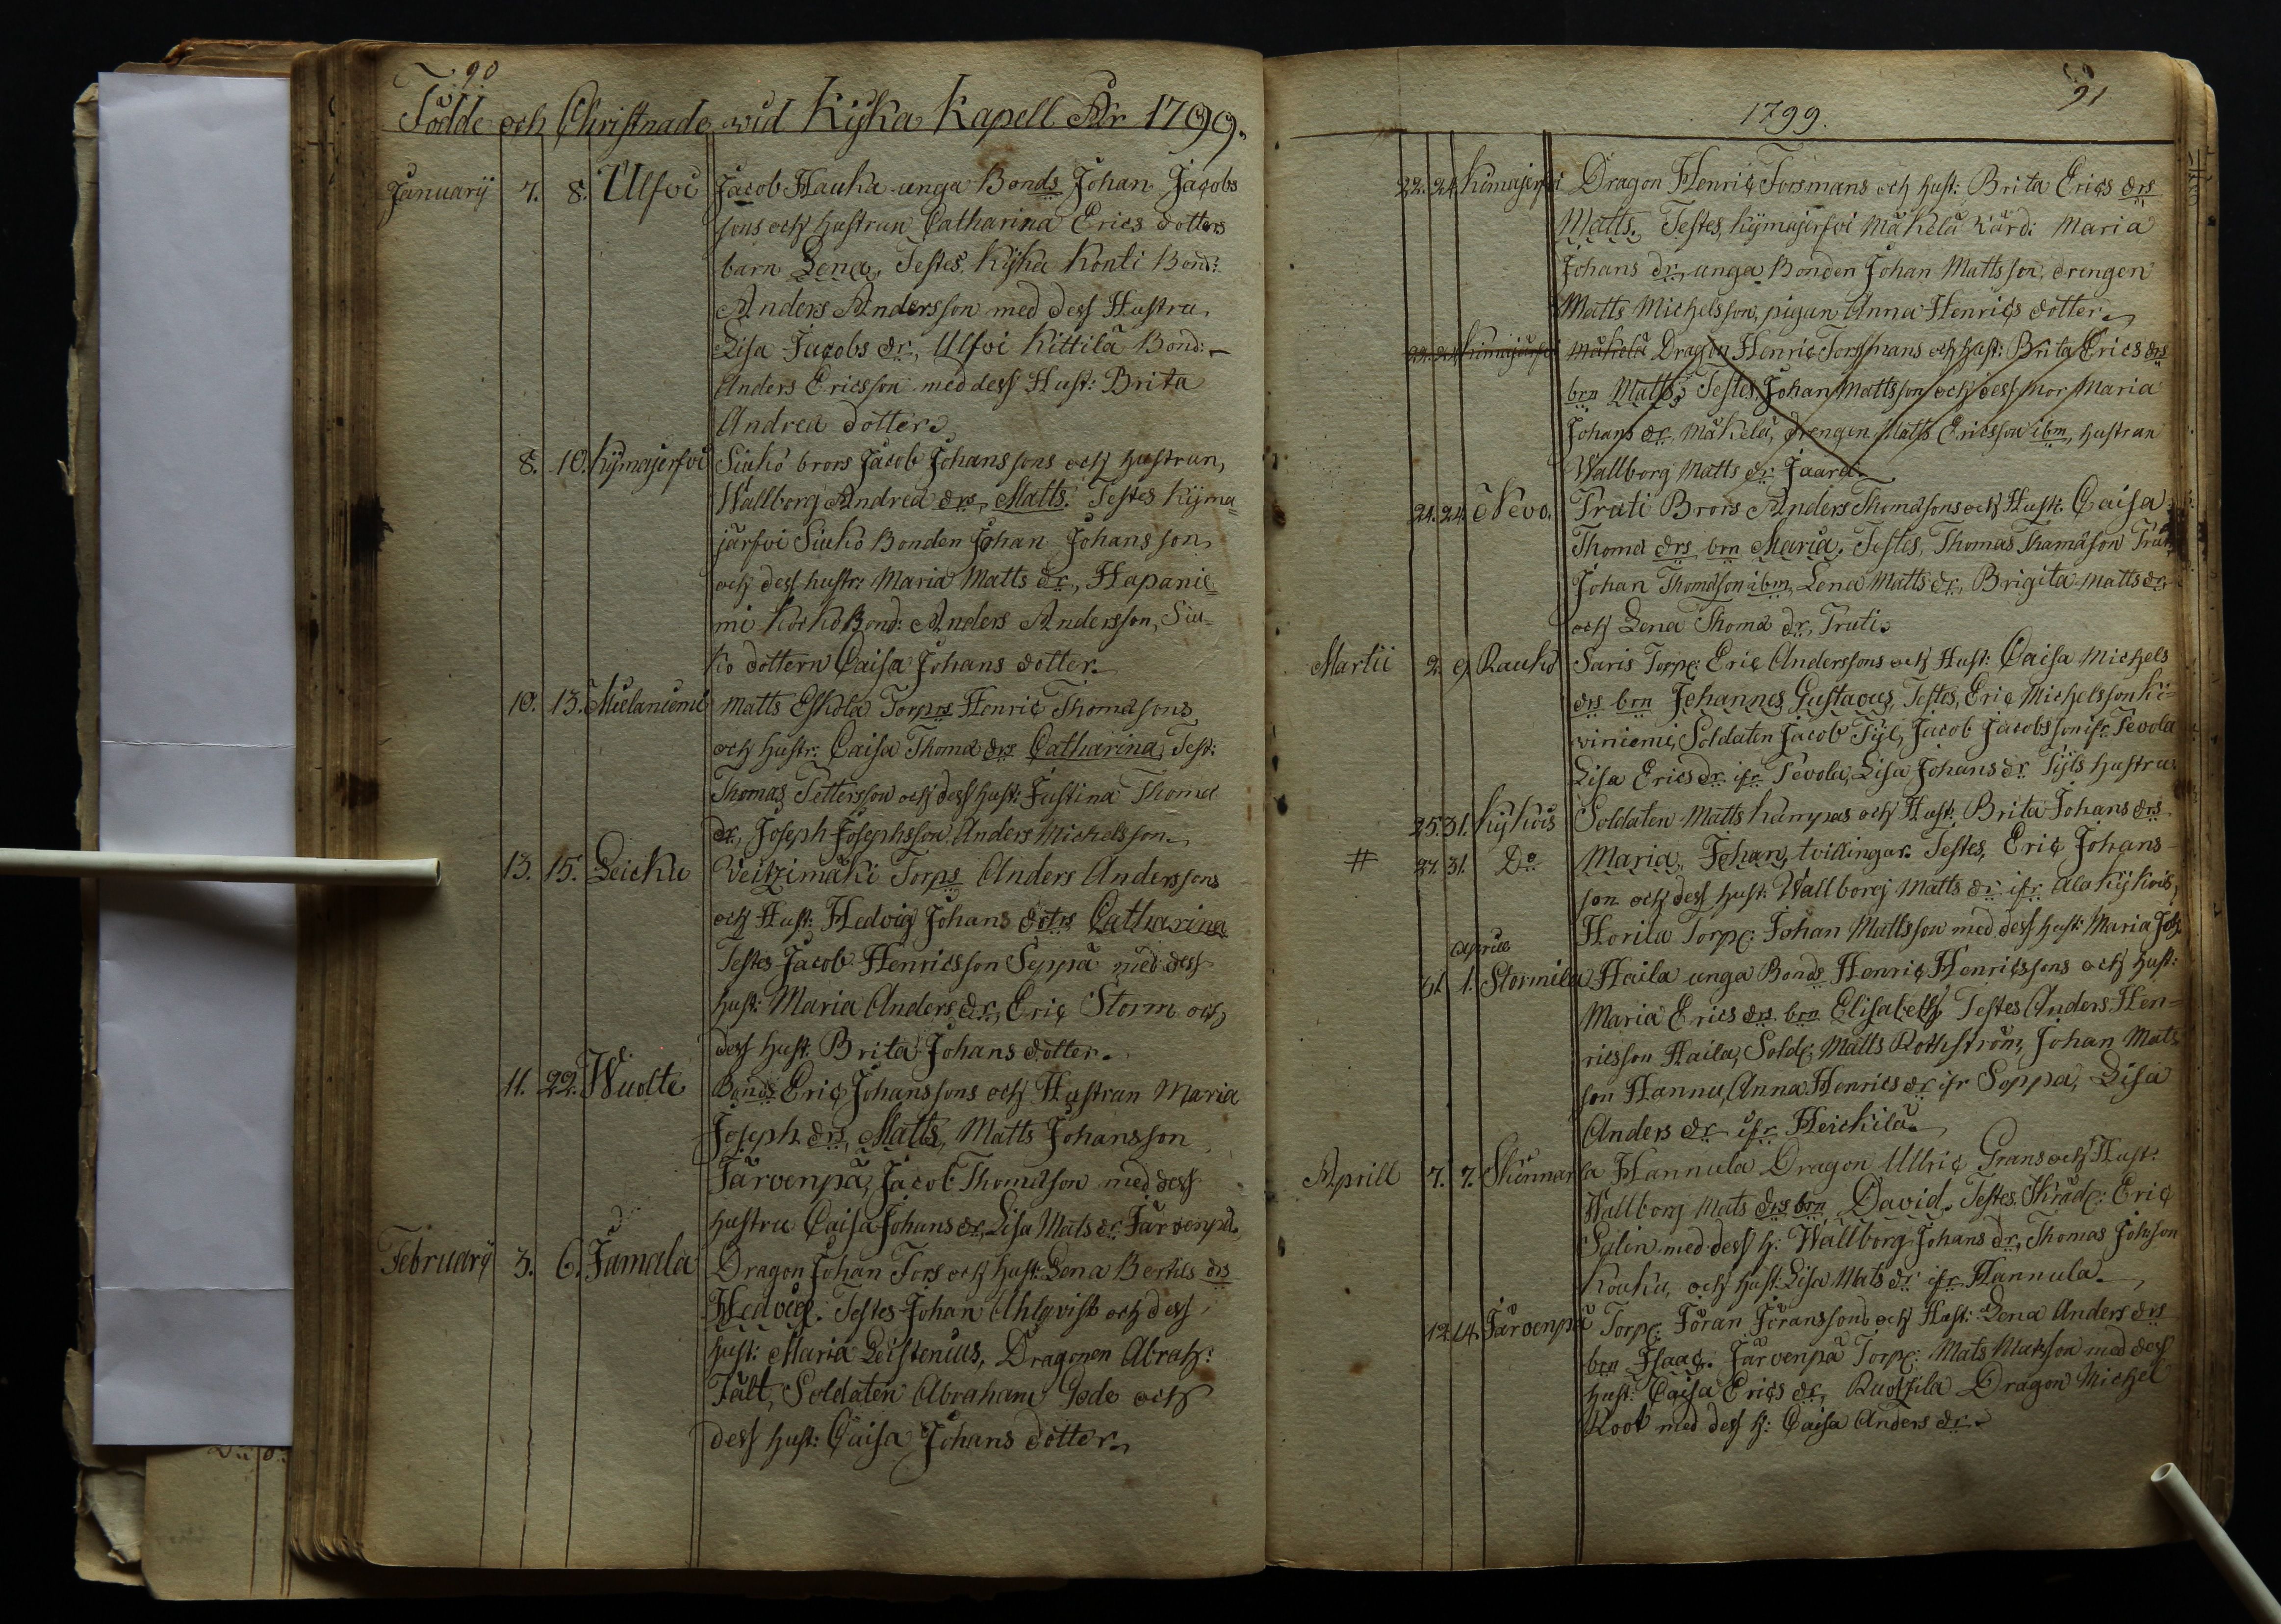 90
Födde och Christnade wid Kyka Kapell År 1799.
Januarij 7. 8. Ulfvi Jacob Hauka unga Bonds Johan Jacobs
sons och hustrun Catharina Erics dotters
barn Lena, Testes Kyka Konti Bond:
Anders Andersson med dess Hustru,
Lisa Jacobs dr, Ulfvi Kittilä Bond:
Anders Ericsson med dess Hust: Brita
Andrea dotter.
8. 10. Kymajerfvi Siukå brors Jacob Johanssons och hustrun,
Wallborg Andrea drs, Matts. Testes Kyma
järfvi Siukå Bonden Johan Johansson,
och dess hustr: Maria Matts dr, Hapanie
mi Bond: Anders Andersson, Siu-
ko dottern Caisa Johans dotter.
10. 13. Mielaniemi Matts Eskola Torprs Henric Thomasons
och hustr: Caisa Thoma drs Catharina, Test:
Thomas Pettersson och dess hust: Justina Thoma
dr, Joseph Josephsson, Anders Michelsson.
13. 15. Leicku Veitzimäki Torps Anders Anderssons
och Hust: Hedvig Johans dotrs Catharina
Testes Jacob Henricsson Seppä med dess
hust: Maria Anders dr, Eric Storm och
dess hust. Brita Johans dotter.
11. 22. Wuolte Bonds Eric Johanssons och Hustrun Maria
Joseph drs, Matts, Matts Johansson
Järvenpä, Jacob Thomason med dess
hustru Caisa Johans dr, Lisa Mats dr Järvenpä.
Februarij 3. 6. Jamala Dragon Johan Fors och hust: Lena Bertils drs
Hedvig. Testes Johan Ahlqvist och dess
hust: Maria Leistenius, Dragonen Abrah:
Fält, Soldaten Abraham Gode och
dess hust: Caisa Johans dotter.
91
1799.
22. 24. Kimajerfvi Dragon Henric Forsmans och hust: Brita Erics drs
Matts. Testes, Kymajerfvi Mäkelä värd: Maria
Johans dr, unga Bonden Johan Mattsson, drengen
Matts Michelsson, pigan Anna Henrics dotter.
22. 24. Kimajärfvi Mäkelä Dragon Henric Forsmans och hust: Brita Erics drs
brn Matts, Testes Johan Mattsson och dess mor Maria
Johans dr Mäkelä, drengen Matts Ericsson ibm, hustrun
Wallborg Matts dr Jaara.
21. 24. Nevo. Truti Brors Anders Thomasons och Hust: Caisa
Thoma drs brn Maria. Testes, Thomas Thomason Truti
Johan Thomason ibm, Lena Matts dr, Brigita Matts dr
och Lena Thoma dr, Truti.
Martii 2. 9. Rauko Saris Torp: Eric Anderssons och Hust: Caisa Michels
drs brn Johannes Gustavus, Testes, Eric Michelsson Ki-
viniemi, Soldaten Jacob Tijl, Jacob Jacobsson ifr. Tevola
Lisa Erics dr ifr Tevola, Lisa Johans dr Tijls hustru
25. 31. Kykois Soldaten Matts Kampas och Hust. Brita Johans drs
# 27. 31. Do Maria, Johan, tvillingar. Testes, Eric Johans-
son och dess hust: Wallborg Matts dr ifr Ala Kykois,
Horila Torp: Johan Mattsson med dess hust: Maria Joh.
Aprill
31. 1. Stormila Haila unga Bonds Henric Henricssons och hust:
Maria Erics drs brn Elisabeth, Testes Anders Hen-
ricsson Haila, Sold: Matts Rothström, Johan Mats
son Hannu, Anna Henrics dr ifr Soppa, Lisa
Anders dr ifr Heickilä.
Aprill 7. 7. Skinnarla Hannula Dragon Ullric Grans och Hust:
Wallborg Mats drs brn David. Testes. Skräd: Eric
Salin med dess h: Wallborg Johans dr, Thomas Johsson
Kouku, och hust: Lisa Mats dr ifr Hannula.
12. 14. Järvenpä Torp: Jöran Jöranssons och Hust: Lena Anders drs
brn Isaac. Järvenpä Torp: Mats Matsson med dess
hust: Caisa Erics dr, Ruohila Dragon Michel
Root med dess h: Caisa Anders dr.